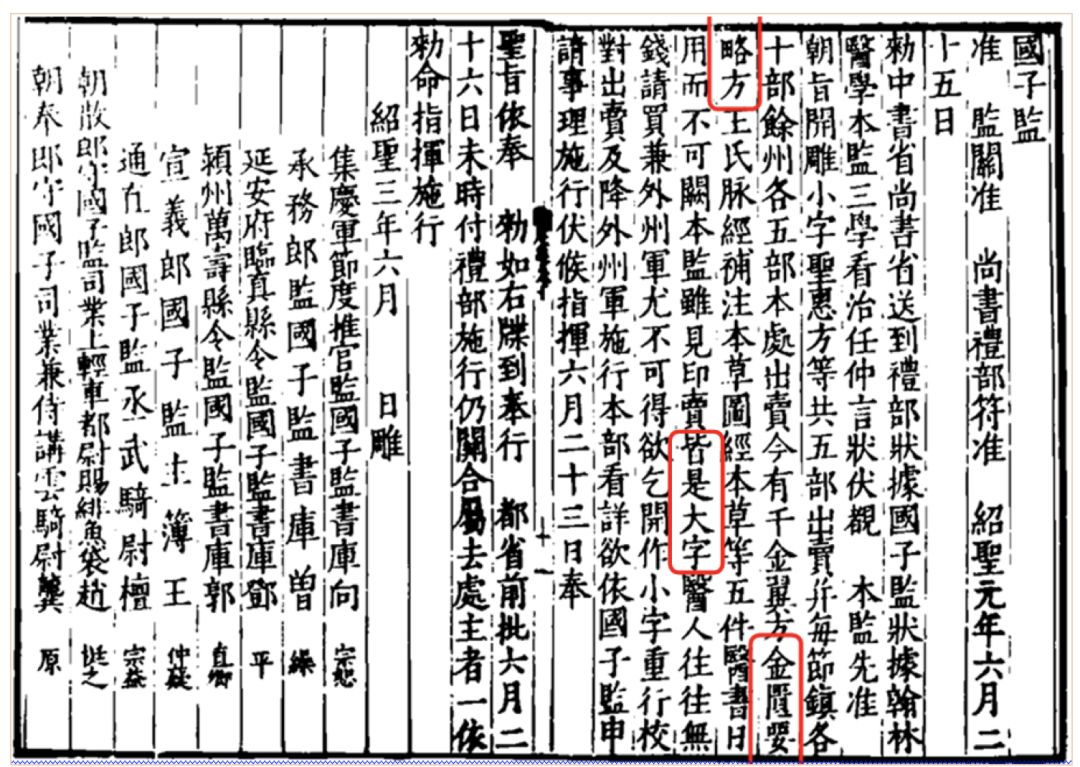 國子監
准　監關准　尚書禮部符准　紹聖元年六月二
十五日
勑中書省尚書省送到禮部狀據國子監狀據翰林
醫學本監三學看治任仲言狀伏覩　本監先准
朝旨開雕小字聖惠方等共五部出賣幷每節鎮各
十部餘州各五部本處出賣今有千金翼方金匱要
略方王氏脉經補注本草圖經本草等五件醫書日
用而不可闕本監雖見印賣皆是大字醫人往往無
錢請買兼外州軍尤不可得欲乞開作小字重行校
對出賣及降外州軍施行本部看詳欲依國子監申
請事理施行伏候指揮六月二十三日奉
十一
聖旨依奉　勑如右牒到奉行　都省前批六月二
十六日未時付禮部施行仍關合屬去處主者一依
勑命指揮施行
紹聖三年六月　　日雕
集慶軍節度推官監國子監書庫向　宗恕
承務郎監國子監書庫曽　繰
延安府臨真縣令監國子監書庫鄧　平
潁州萬壽縣令監國子監書庫郭　直卿
宣義郎國子監主簿王　仲薿
通直郎國子監丞武騎尉檀　宗益
朝散郎守國子監司業上輕車都尉賜緋魚袋趙　挺之
朝奉郎守國子司業兼侍講雲騎尉龔　原